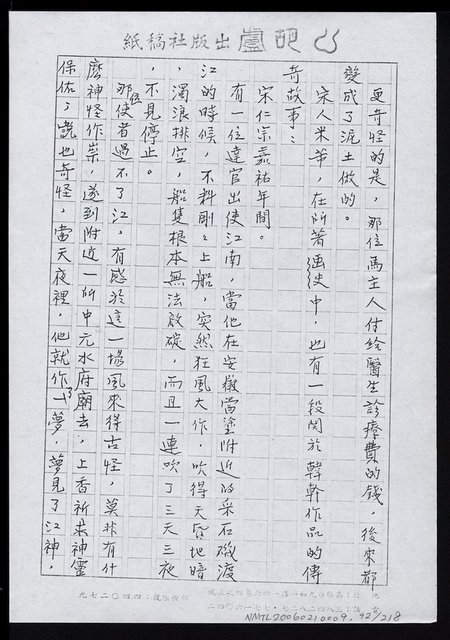 心葫蘆出版社稿紙
更奇怪的是，那位馬主人付給醫生診療費的錢，後來都
變成了泥土做的。
宋人米芾，在所著畫史中，也有一段関於韓幹作品的傳
奇故事：
宋仁宗嘉祐年間。
有一位達官出使江南，當他在安徽當塗附近的采石磯渡
江的時候，不料剛剛上船，突然狂風大作，吹得天昏地暗
，濁浪排空，船隻根本無法啟碇，而且一連吹了三天三夜
，不見停止。
那位使者過不了江，有感於這一場風來得古怪，莫非有什
麽神怪作祟，遂到附近一所中元水府廟去，上香祈求神靈
保佑；說也奇怪，當天夜裡，他就作了一夢，夢見了江神，
NMTL20060210009. 92/218